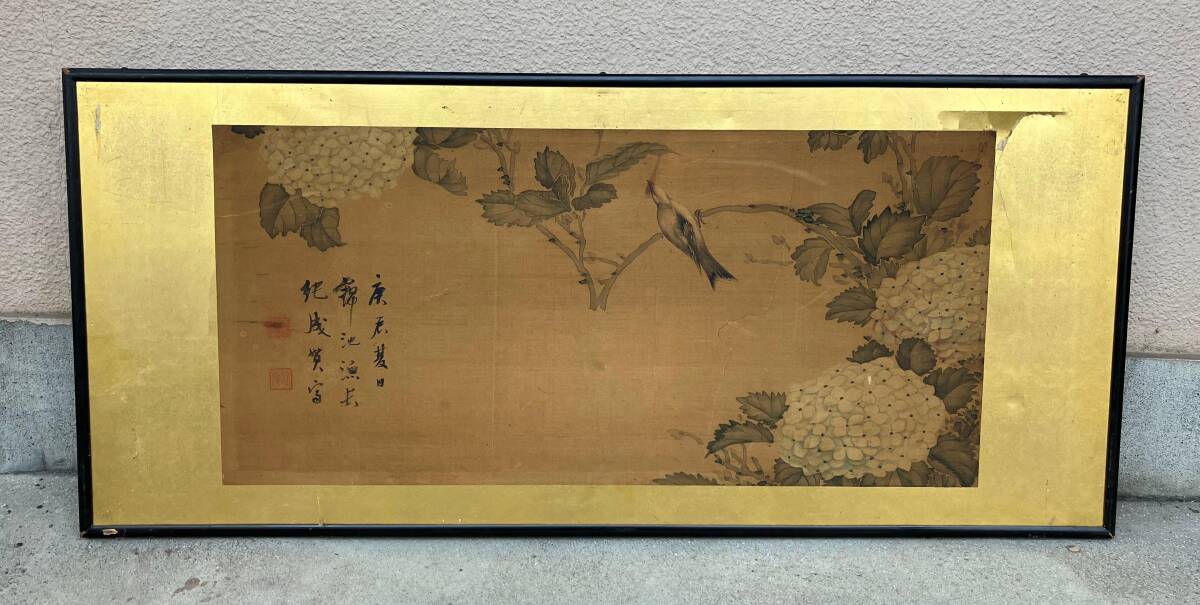 庚辰夏日
錦池漁長
紀成寫